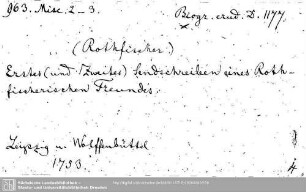 963. Misc. 2-3.
Biogr. erud. D. 1177.
(Rothfischer.)
Erstes (und Zweites) Sendschreiben eines Roth-
fischerischen Freundes.
Leipzig u. Wolffenbüttel
1753
4.
Sächsische Landesbibliothek -
Staats- und Universitätsbibliothek Dresden